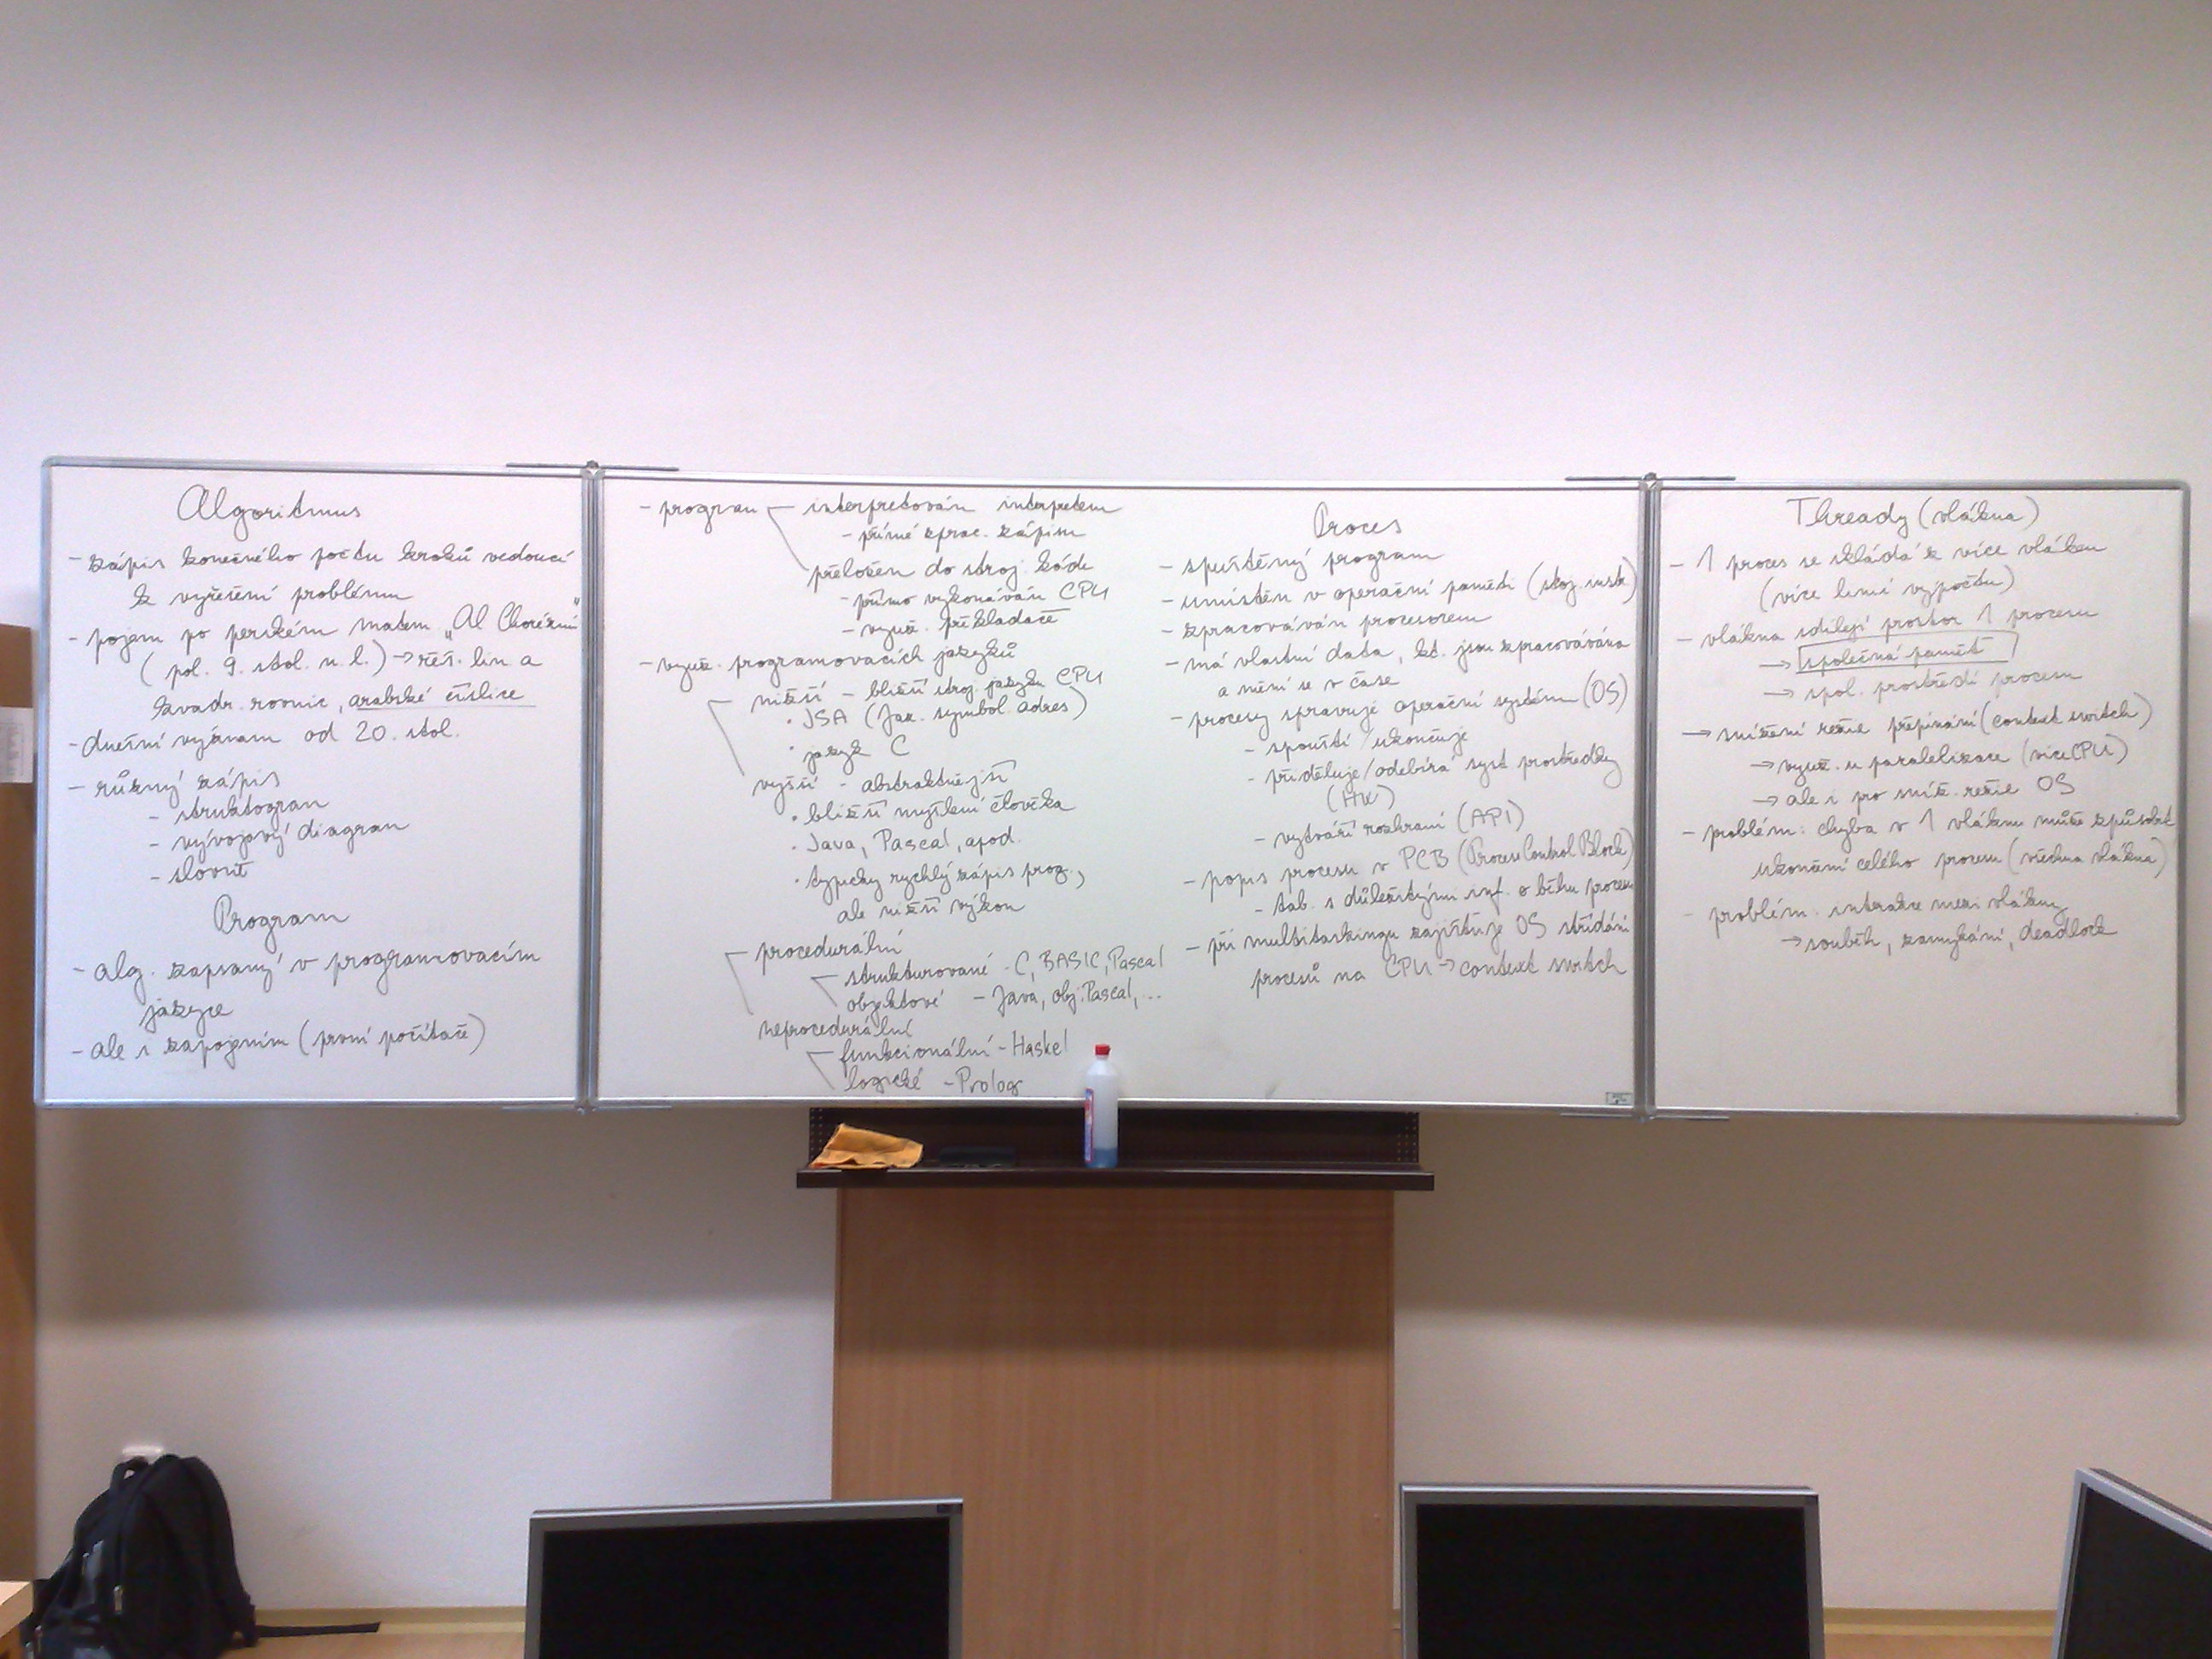 Algoritmus
- zápis konečného počtu kroků vedoucí
k vyřešení problému
- pojem po perském matem. „Al Chorézmí“
(pol. 9. stol. n. l.) → řeš. lin a
kvadr. rovnic, arabské číslice
- dnešní význam od 20. stol.
- různý zápis
- struktogram
- vývojový diagram
- slovně
Program
- alg. zapsaný v programovacím
jazyce
- ale i zapojením (první počítače)
- program - interpretován interpretem
- přímé zprac. zápisu
přeložen do stroj. kódu
- přímo vykonáván CPU
- využ. překladače
- využ. programovacích jazyků
nižší - bližší stroj. jazyku CPU
• JSA (Jaz. symbol. adres)
• jazyk C
vyšší - abstraktnější
• bližší myšlení člověka
• Java, Pascal, apod.
• typicky rychlý zápis prog.,
ale nižší výkon
- procedurální
strukturované - C, BASIC, Pascal
objektové - Java, obj. Pascal, ...
neprocedurální
funkcionální - Haskel
logické - Prolog
Proces
- spuštěný program
- umístěn v operační paměti (stroj. instr.)
- zpracováván procesorem
- má vlastní data, kt. jsou zpracovávána
a mění se v čase
- procesy spravuje operační systém (OS)
- spouští/ukončuje
- přiděluje/odebírá syst. prostředky
(HW)
- vytváří rozhraní (API)
- popis procesu v PCB (Process Control Block)
- tab. s důležitými inf. o běhu procesu
- při multitaskingu zajišťuje OS střídání
procesů na CPU → context switch
Thready (vlákna)
- 1 proces se skládá z více vláken
(více linií výpočtu)
- vlákna sdílejí prostor 1 procesu
→ společná paměť
→ spol. prostředí procesu
→ snížení režie přepínání (context switch)
→ využ. u paralelizace (více CPU)
→ ale i pro sníž. režie OS
- problém: chyba v 1 vláknu může způsobit
ukončení celého procesu (všechna vlákna)
- problém: interakce mezi vlákny
→ souběh, zamykání, deadlock